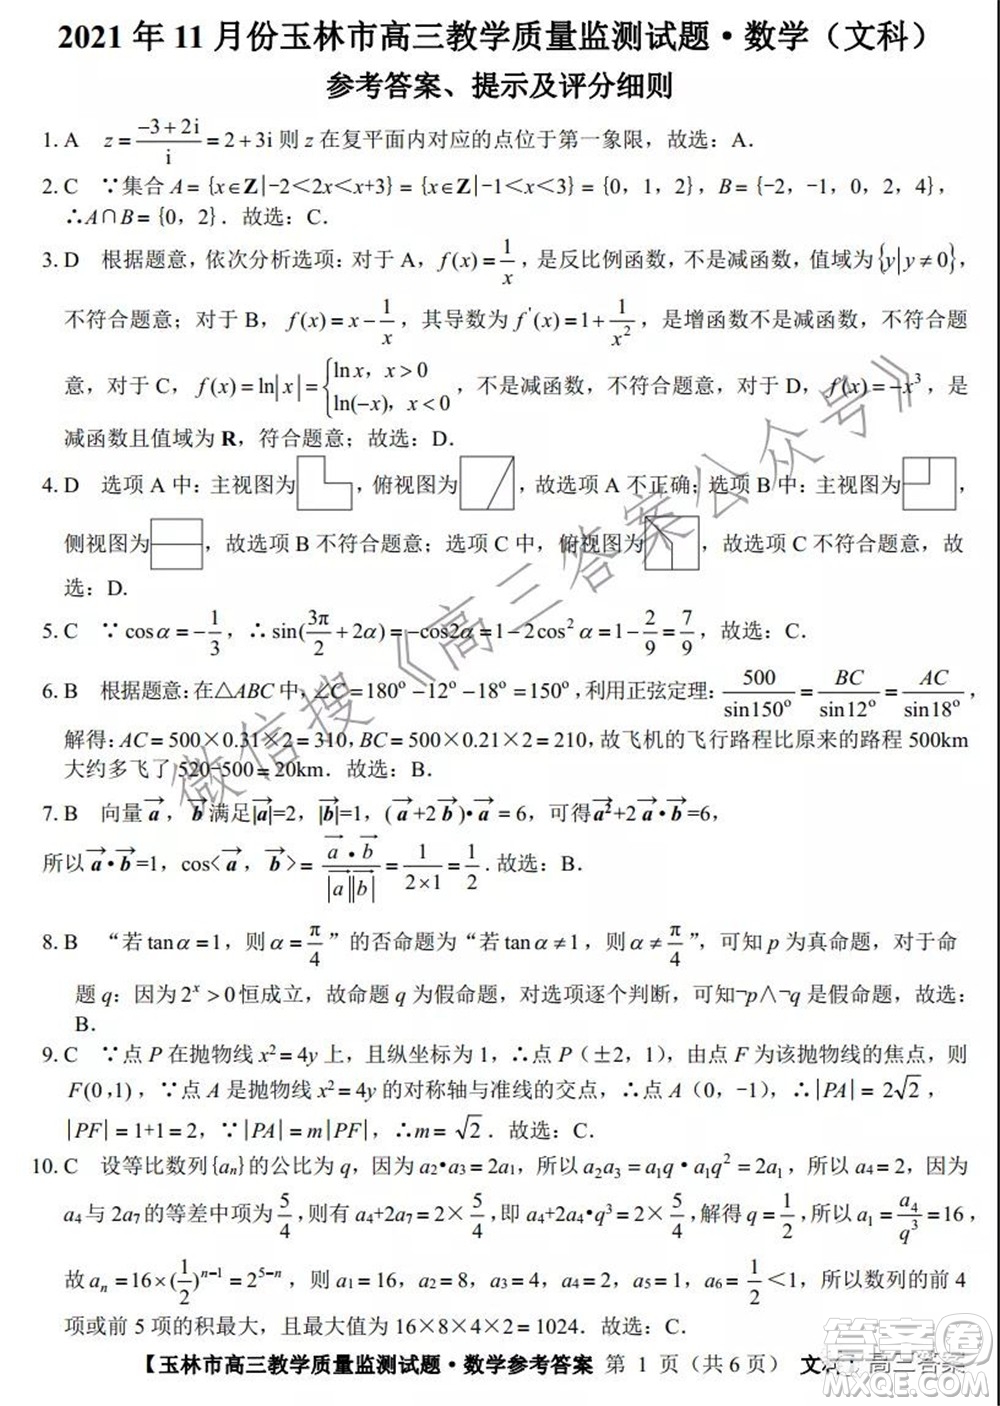 2021 年 11 月份玉林市高三教学质量监测试题·数学（文科）
参考答案、提示及评分细则
1. A　z = (-3+2i)/i = 2+3i 则 z 在复平面内对应的点位于第一象限，故选：A.
2. C　∵集合 A = {x∈Z|-2＜2x＜x+3} = {x∈Z|-1＜x＜3} = {0，1，2}，B = {-2，-1，0，2，4}，
∴A∩B = {0，2}．故选：C.
3. D　根据题意，依次分析选项：对于 A，f(x) = 1/x，是反比例函数，不是减函数，值域为{y|y≠0}，
不符合题意；对于 B，f(x) = x - 1/x，其导数为 f'(x) = 1 + 1/x²，是增函数不是减函数，不符合题
意，对于 C，f(x) = ln|x| = { ln x，x > 0 ; ln(-x)，x < 0，不是减函数，不符合题意，对于 D，f(x) = -x³，是
减函数且值域为 R，符合题意；故选：D.
4. D　选项 A 中：主视图为　，俯视图为　，故选项 A 不正确；选项 B 中：主视图为　，
侧视图为　，故选项 B 不符合题意；选项 C 中，俯视图为　，故选项 C 不符合题意，故
选：D.
5. C　∵ cosα = -1/3，∴ sin(3π/2 + 2α) = -cos2α = 1-2cos²α = 1 - 2/9 = 7/9，故选：C.
6. B　根据题意：在△ABC 中，∠C = 180° -12° -18° = 150°，利用正弦定理：500/sin150° = BC/sin12° = AC/sin18°，
解得：AC = 500×0.31×2 = 310，BC = 500×0.21×2 = 210，故飞机的飞行路程比原来的路程 500km
大约多飞了 520-500 = 20km．故选：B.
7. B　向量 a→，b→满足|a→|=2，|b→|=1，(a→+2 b→)•a→ = 6，可得a→²+2 a→•b→=6，
所以 a→•b→=1，cos<a→，b→> = a→•b→/|a→||b→| = 1/(2×1) = 1/2．故选：B.
8. B　“若 tanα = 1，则 α = π/4 ”的否命题为“若 tanα ≠ 1，则 α ≠ π/4”，可知 p 为真命题，对于命
题 q：因为 2ˣ > 0 恒成立，故命题 q 为假命题，对选项逐个判断，可知¬p∧¬q 是假命题，故选：
B.
9. C　∵点 P 在抛物线 x² = 4y 上，且纵坐标为 1，∴点 P（±2，1），由点 F 为该抛物线的焦点，则
F(0，1)，∵点 A 是抛物线 x² = 4y 的对称轴与准线的交点，∴点 A（0，-1），∴|PA| = 2√2，
|PF| = 1+1 = 2，∵|PA| = m|PF|，∴m = √2．故选：C.
10. C　设等比数列{aₙ}的公比为 q，因为 a₂•a₃ = 2a₁，所以 a₂a₃ = a₁q•a₁q² = 2a₁，所以 a₄ = 2，因为
a₄与 2a₇的等差中项为 5/4，则有 a₄+2a₇ = 2×5/4，即 a₄+2a₄•q³ = 2×5/4，解得 q = 1/2，所以 a₁ = a₄/q³ = 16，
故 aₙ = 16×(1/2)ⁿ⁻¹ = 2⁵⁻ⁿ，则 a₁ = 16，a₂ = 8，a₃ = 4，a₄ = 2，a₅ = 1，a₆ = 1/2＜1，所以数列的前 4
项或前 5 项的积最大，且最大值为 16×8×4×2 = 1024．故选：C.
【玉林市高三教学质量监测试题·数学参考答案　第 1 页（共 6 页）　文科　高三答案
微信搜《高三答案公众号》
答案圈
MXQE.COM